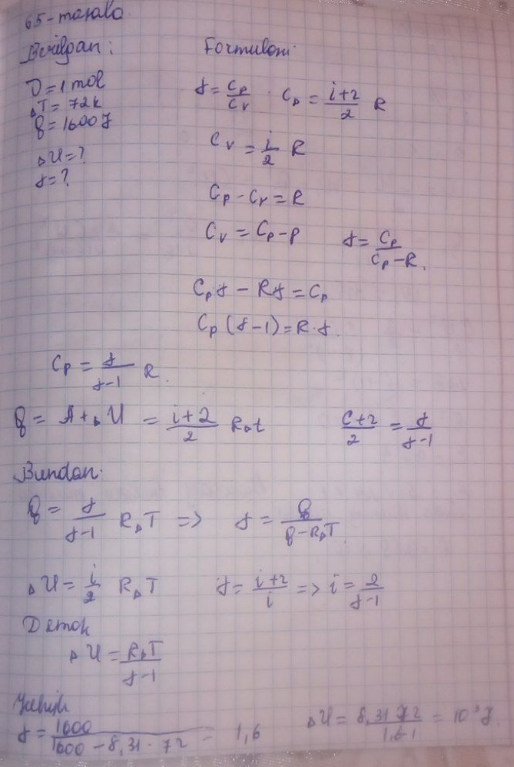 65-masala
Berilgan: Formulasi:
ν=1 mol
ΔT=72K
Q=1600J
ΔU=?
γ=?
γ=Cp/Cv Cp=(i+2)/2 R
Cv=i/2 R
Cp-Cv=R
Cv=Cp-R γ=Cp/(Cp-R).
Cpγ-Rγ=Cp
Cp(γ-1)=R·γ.
Cp=γ/(γ-1) R.
Q=A+ΔU=(i+2)/2 RΔt (i+2)/2=γ/(γ-1)
Bundan.
Q=γ/(γ-1) RΔT => γ=Q/(Q-RΔT)
ΔU=i/2 RΔT γ=(i+2)/i => i=2/(γ-1)
Demak
ΔU=RΔT/(γ-1)
γ=1600/(1600-8,31·72)=1,6 ΔU=8,31·72/(1,6-1)=10³J.